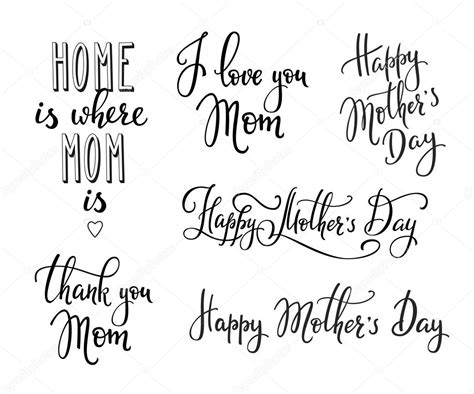 HOME
is where
MOM
is
I love you
Mom
Happy
Mother's
Day
Happy Mother's Day
thank you
Mom
Happy Mother's Day